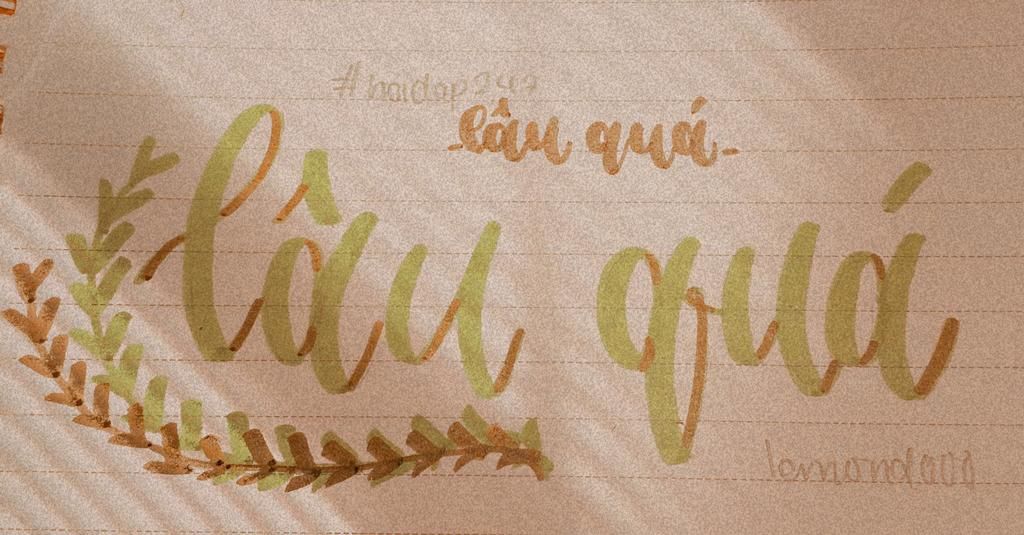 #hoidap247
-lâu quá-
lâu quá